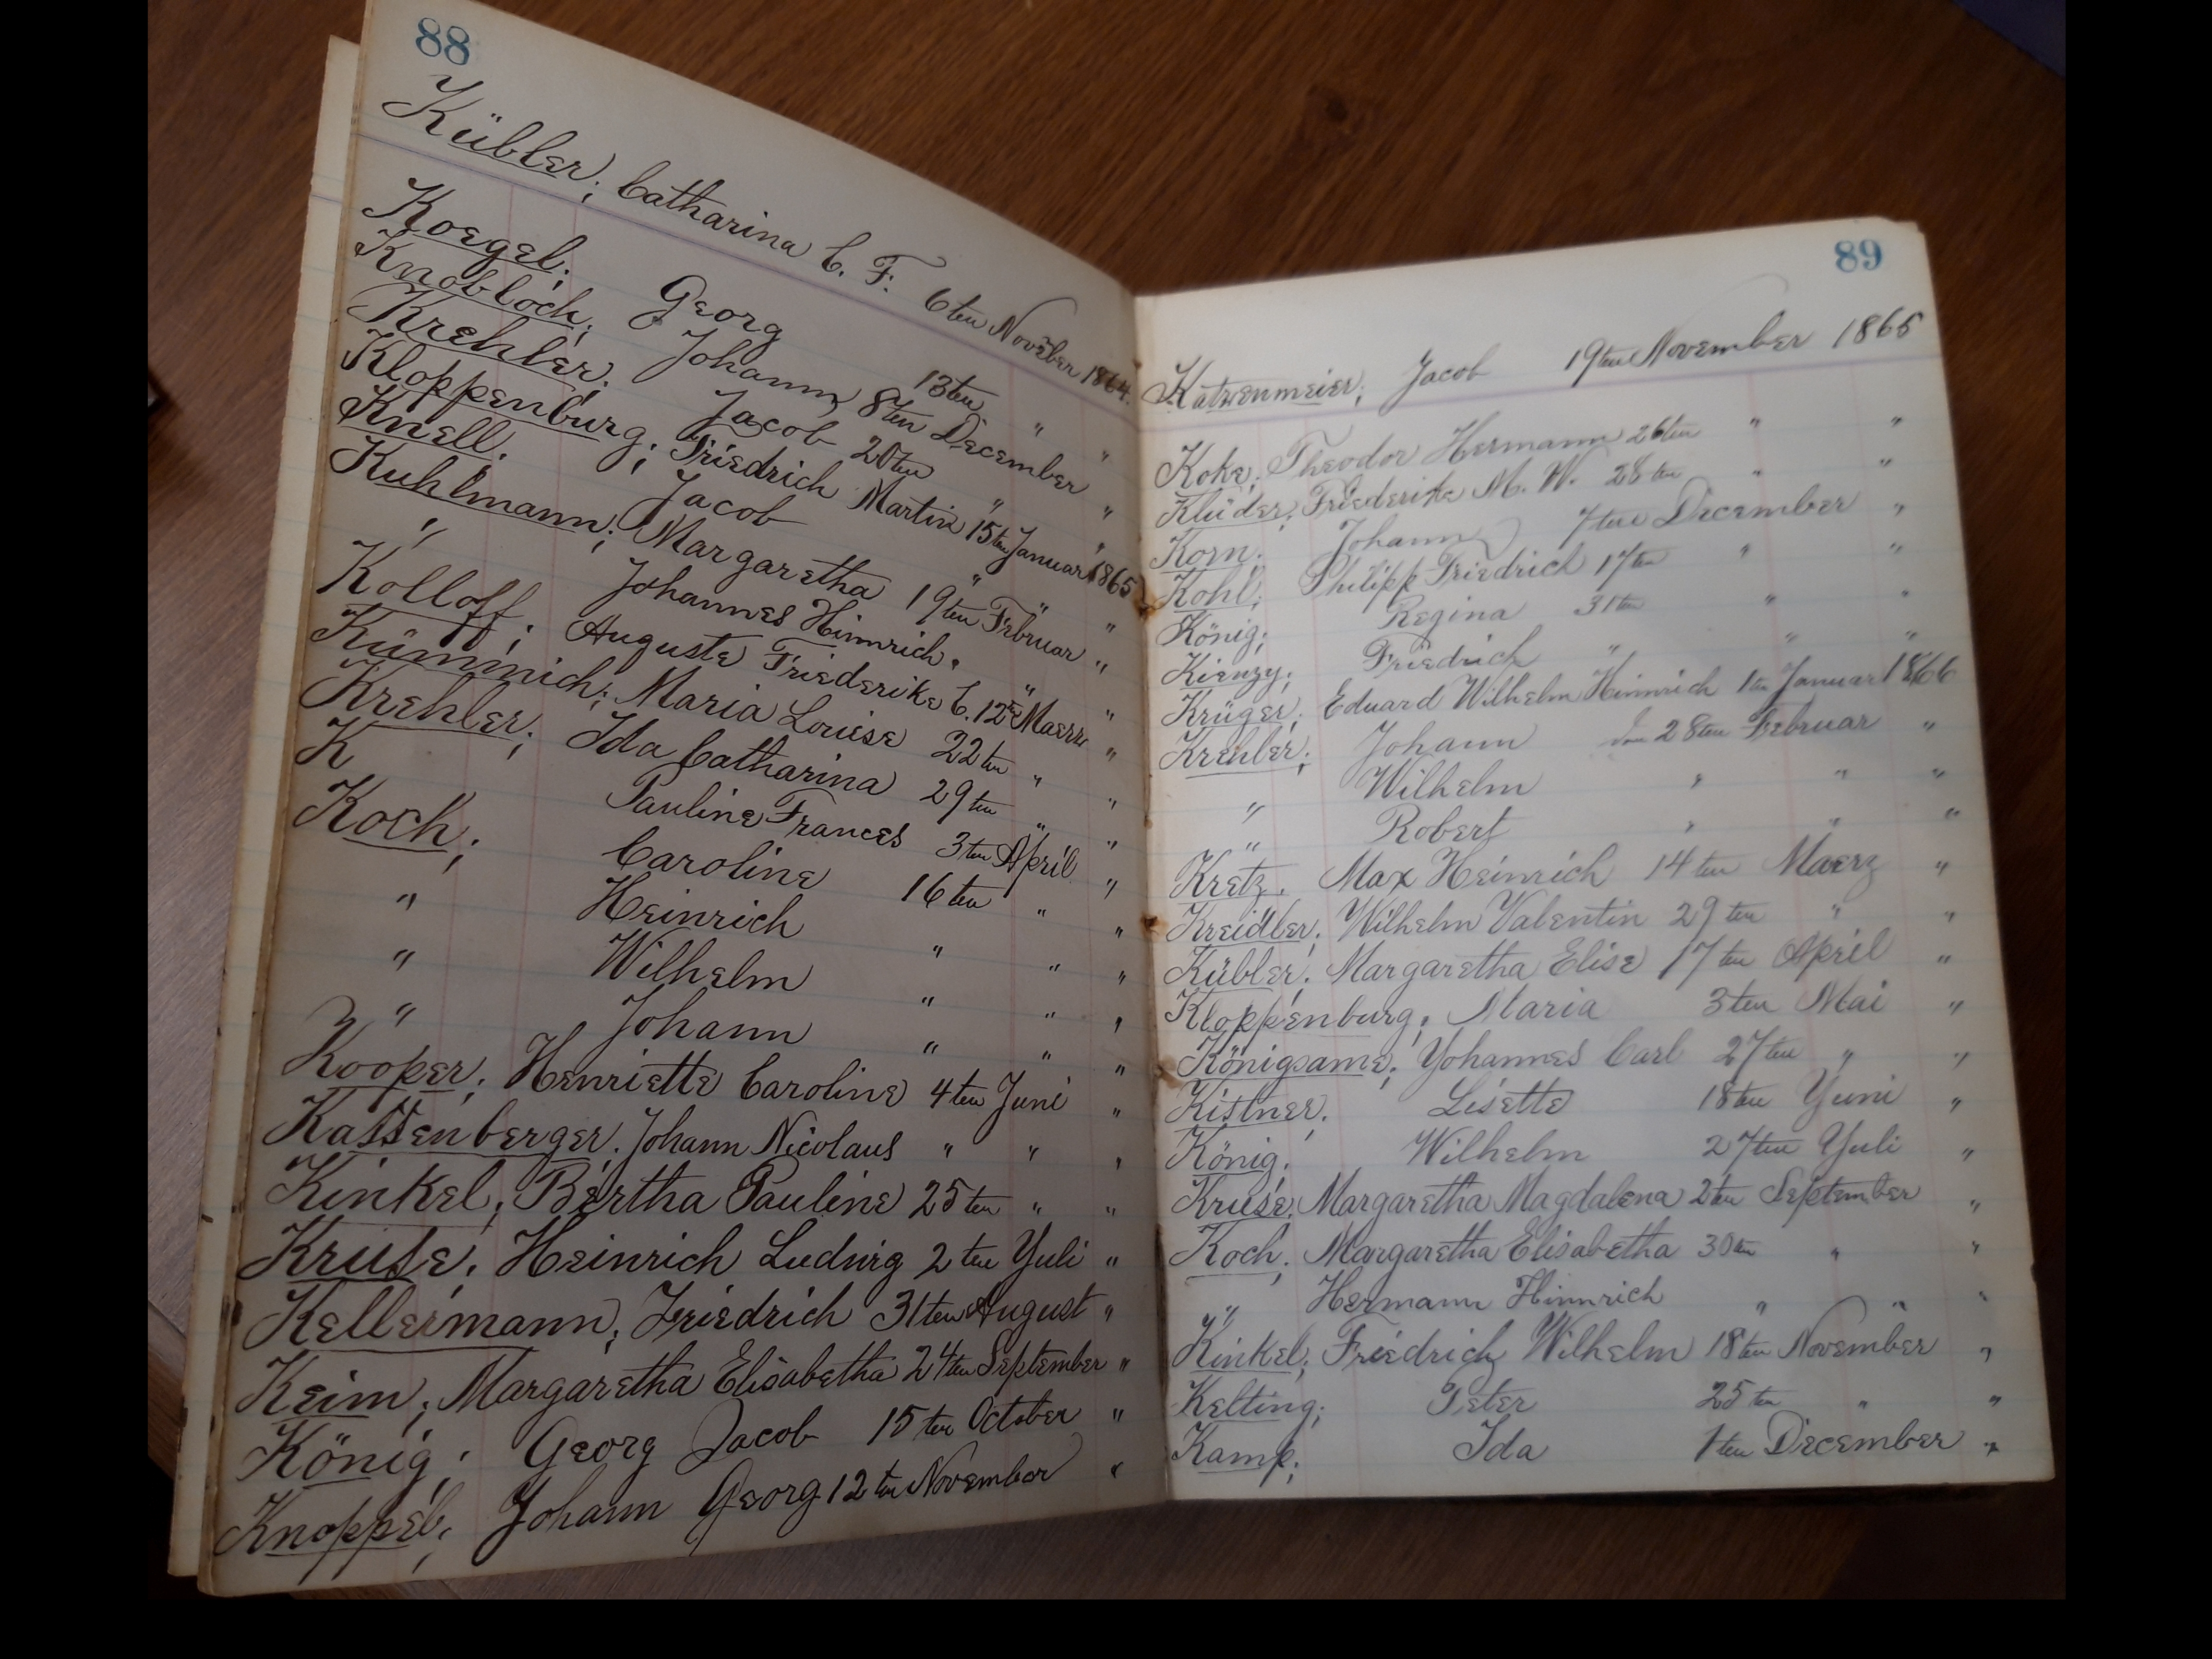 88
Kübler; Catharina C. F. 6ten Novēber 1864.
Koegel; Georg 13ten " "
Knobloch; Johann 8ten December "
Krehler; Jacob 20ten " "
Kloppenburg; Friedrich Martin 15ten Januar 1865
Knell; Jacob " " "
Kuhlmann; Margaretha 19ten Februar "
" Johannes Hinnrich. " "
Kolloff; Auguste Friederike C. 12te Maerz "
Kümmich; Maria Louise 22ten " "
Krehler; Ida Catharina 29ten " "
K Pauline Frances 3ten April "
Koch; Caroline 16ten " "
" Heinrich " " "
" Wilhelm " " "
" Johann " " "
Kooper; Henriette Caroline 4ten Juni "
Kattenberger; Johann Nicolaus " " "
Kinkel; Bertha Pauline 25ten " "
Kruse; Heinrich Ludwig 2ten Yuli "
Kellermann; Friedrich 31ten August "
Keim; Margaretha Elisabetha 24ten September "
König; Georg Jacob 15ten October "
Knoppel; Johann Georg 12ten November "
89
Katzenmeier; Jacob 19ten November 1865
Koke; Theodor Hermann 26ten " "
Klüder; Friederike M. W. 28ten " "
Korn; Johann 7ten December "
Kohl; Philipp Friedrich 17ten " "
König; Regina 31ten " "
Kienzy; Friedrich " " "
Krüger; Eduard Wilhelm Hinnrich 1ten Januar 1866
Krehler; Johann den 28ten Februar "
" Wilhelm " " "
" Robert " " "
Kretz; Max Heinrich 14ten Maerz "
Kreidler; Wilhelm Valentin 29ten " "
Kübler; Margaretha Elise 17ten April "
Kloppenburg; Maria 3ten Mai "
Königsame; Yohannes Carl 27ten " "
Kistner; Lisette 18ten Yuni "
König; Wilhelm 27ten Yuli "
Kruse; Margaretha Magdalena 2ten September "
Koch; Margaretha Elisabetha 30ten " "
" Hermann Hinnrich " " "
Kinkel; Friedrich Wilhelm 18ten November "
Kelting; Peter 25ten " "
Kamp; Ida 1ten December "